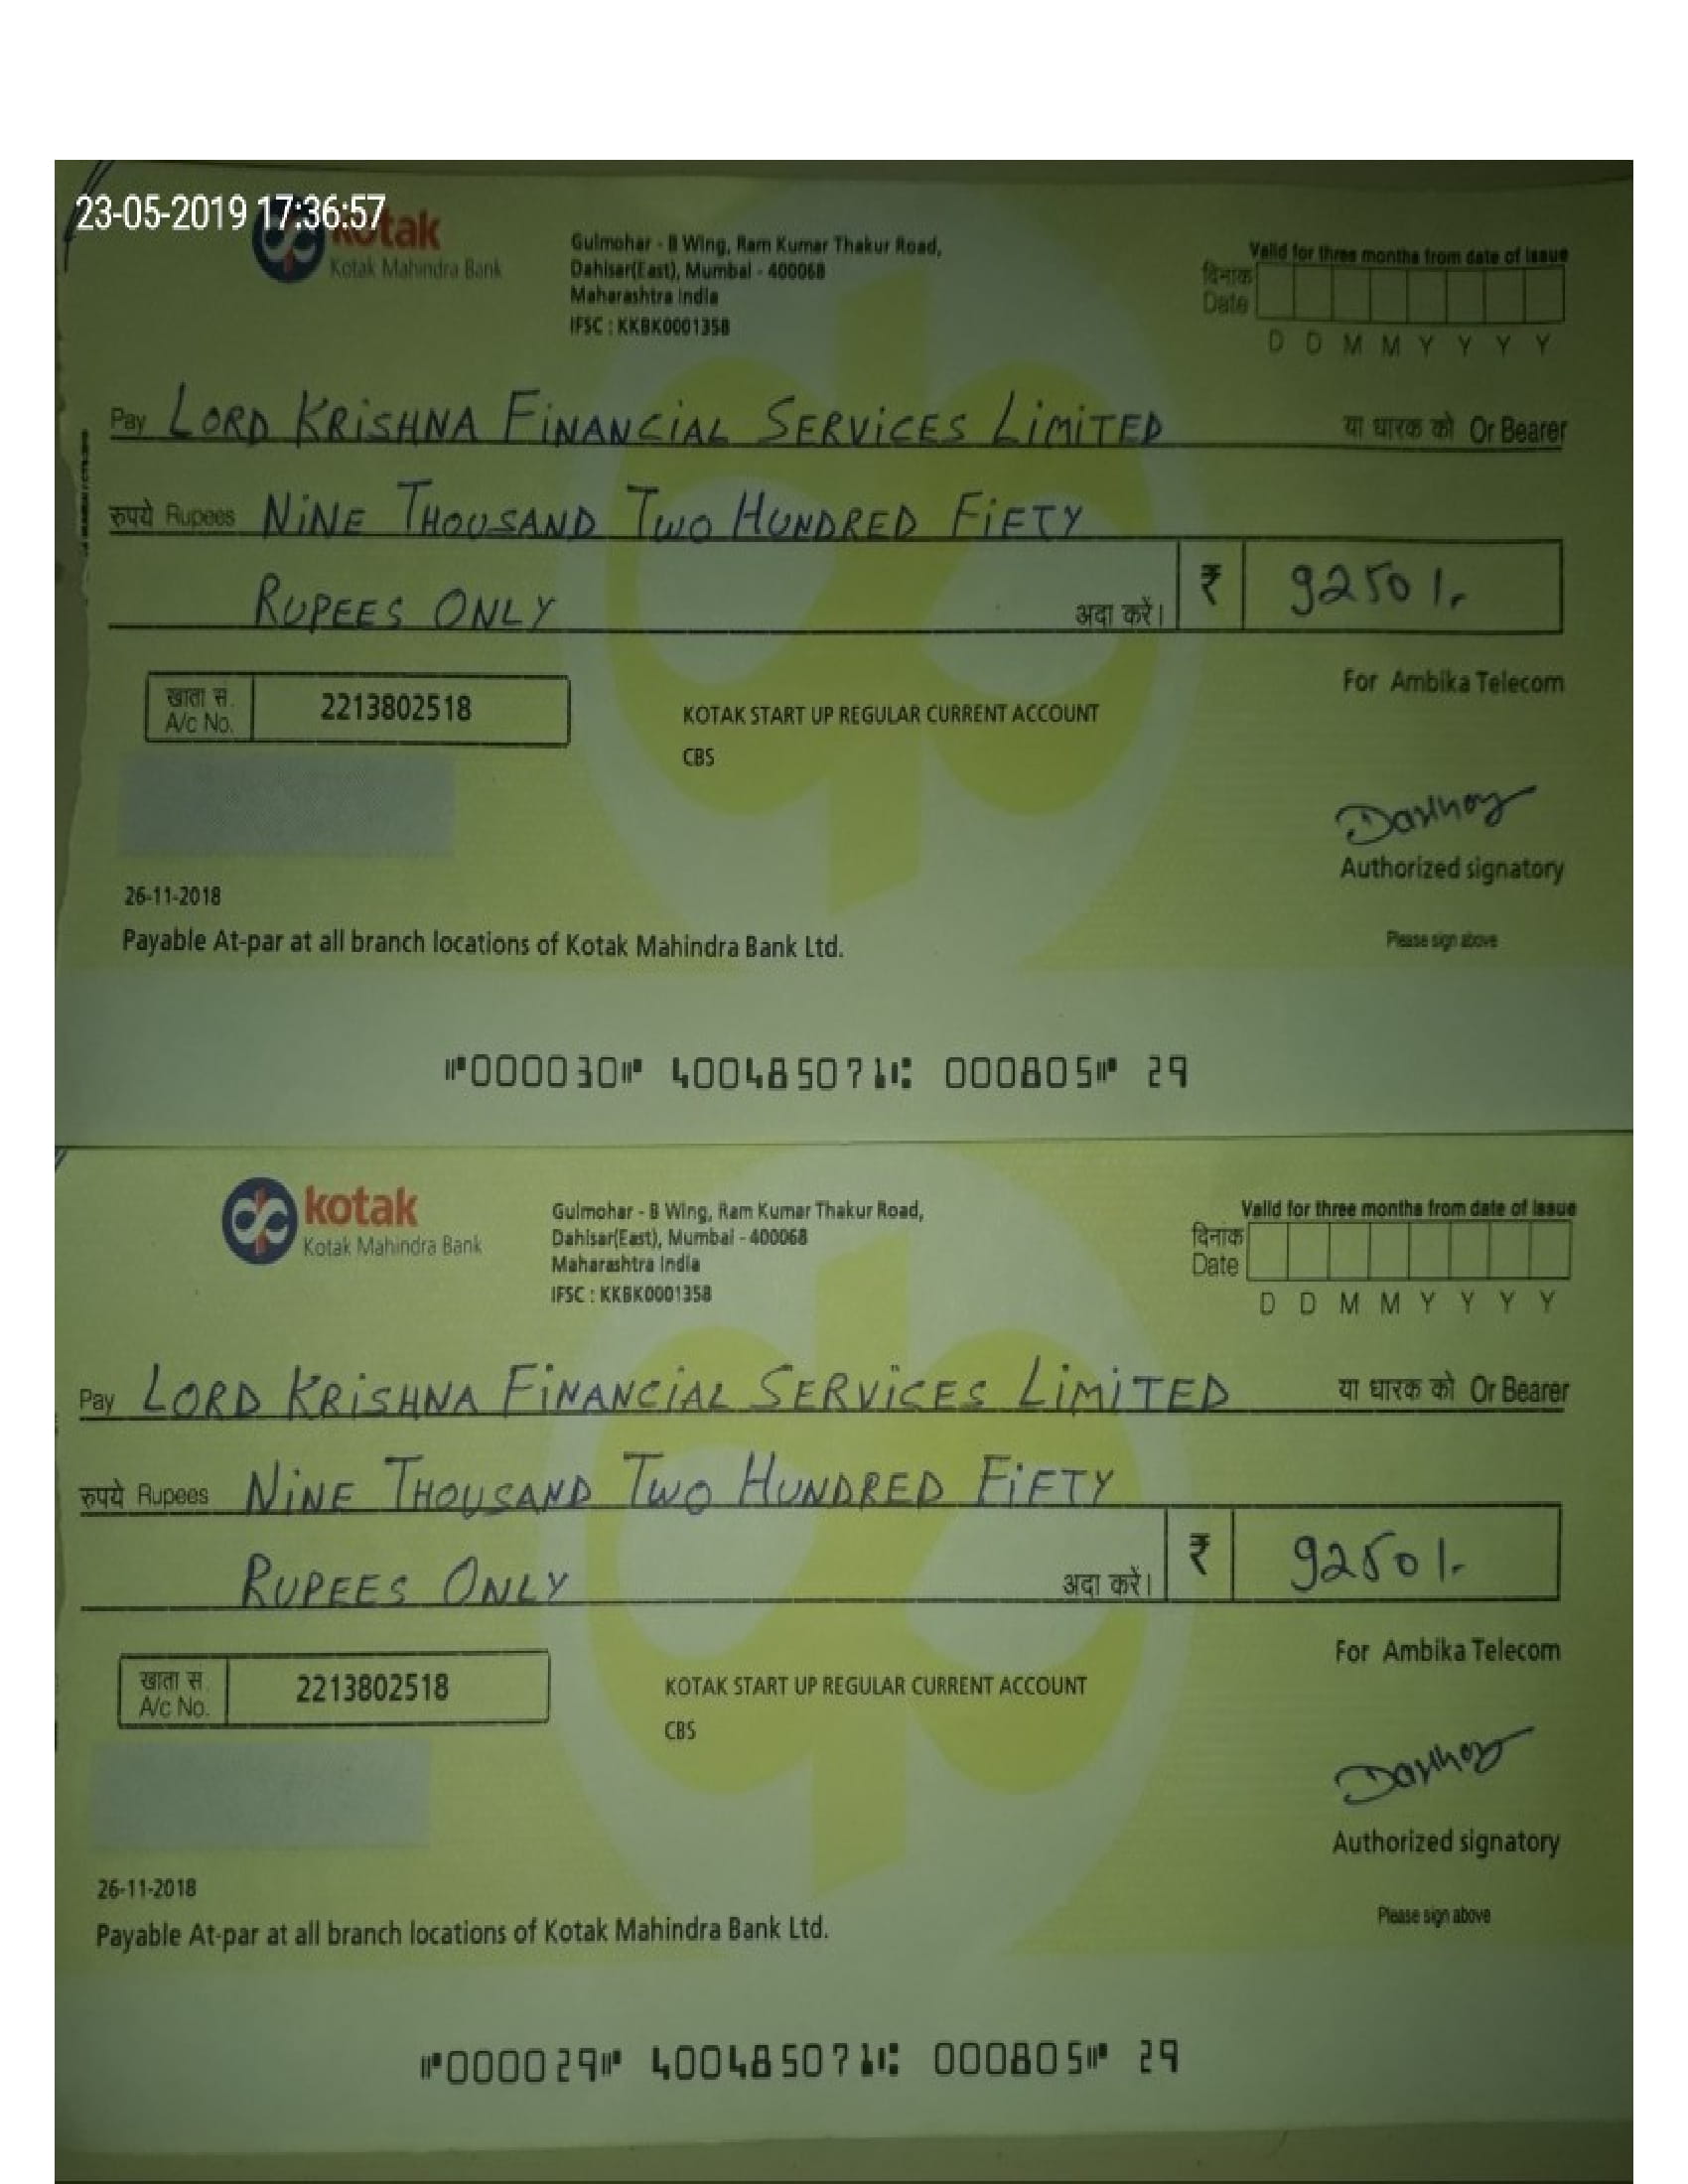 23-05-2019 17:36:57
kotak
Kotak Mahindra Bank
Gulmohar - B Wing, Ram Kumar Thakur Road,
Dahisar(East), Mumbai - 400068
Maharashtra India
IFSC : KKBK0001358
Valid for three months from date of issue
दिनांक
Date
D D M M Y Y Y Y
Pay LORD KRISHNA FINANCIAL SERVICES LIMITED या धारक को Or Bearer
रुपये Rupees NINE THOUSAND TWO HUNDRED FIFTY
RUPEES ONLY अदा करें। ₹ 9250/-
खाता सं.
A/c No. 2213802518
KOTAK START UP REGULAR CURRENT ACCOUNT
CBS
For Ambika Telecom
Authorized signatory
Please sign above
26-11-2018
Payable At-par at all branch locations of Kotak Mahindra Bank Ltd.
⑈000030⑈ 400485071⑆ 000805⑈ 29
kotak
Kotak Mahindra Bank
Gulmohar - B Wing, Ram Kumar Thakur Road,
Dahisar(East), Mumbai - 400068
Maharashtra India
IFSC : KKBK0001358
Valid for three months from date of issue
दिनांक
Date
D D M M Y Y Y Y
Pay LORD KRISHNA FINANCIAL SERVICES LIMITED या धारक को Or Bearer
रुपये Rupees NINE THOUSAND TWO HUNDRED FIFTY
RUPEES ONLY अदा करें। ₹ 9250/-
खाता सं.
A/c No. 2213802518
KOTAK START UP REGULAR CURRENT ACCOUNT
CBS
For Ambika Telecom
Authorized signatory
Please sign above
26-11-2018
Payable At-par at all branch locations of Kotak Mahindra Bank Ltd.
⑈000029⑈ 400485071⑆ 000805⑈ 29